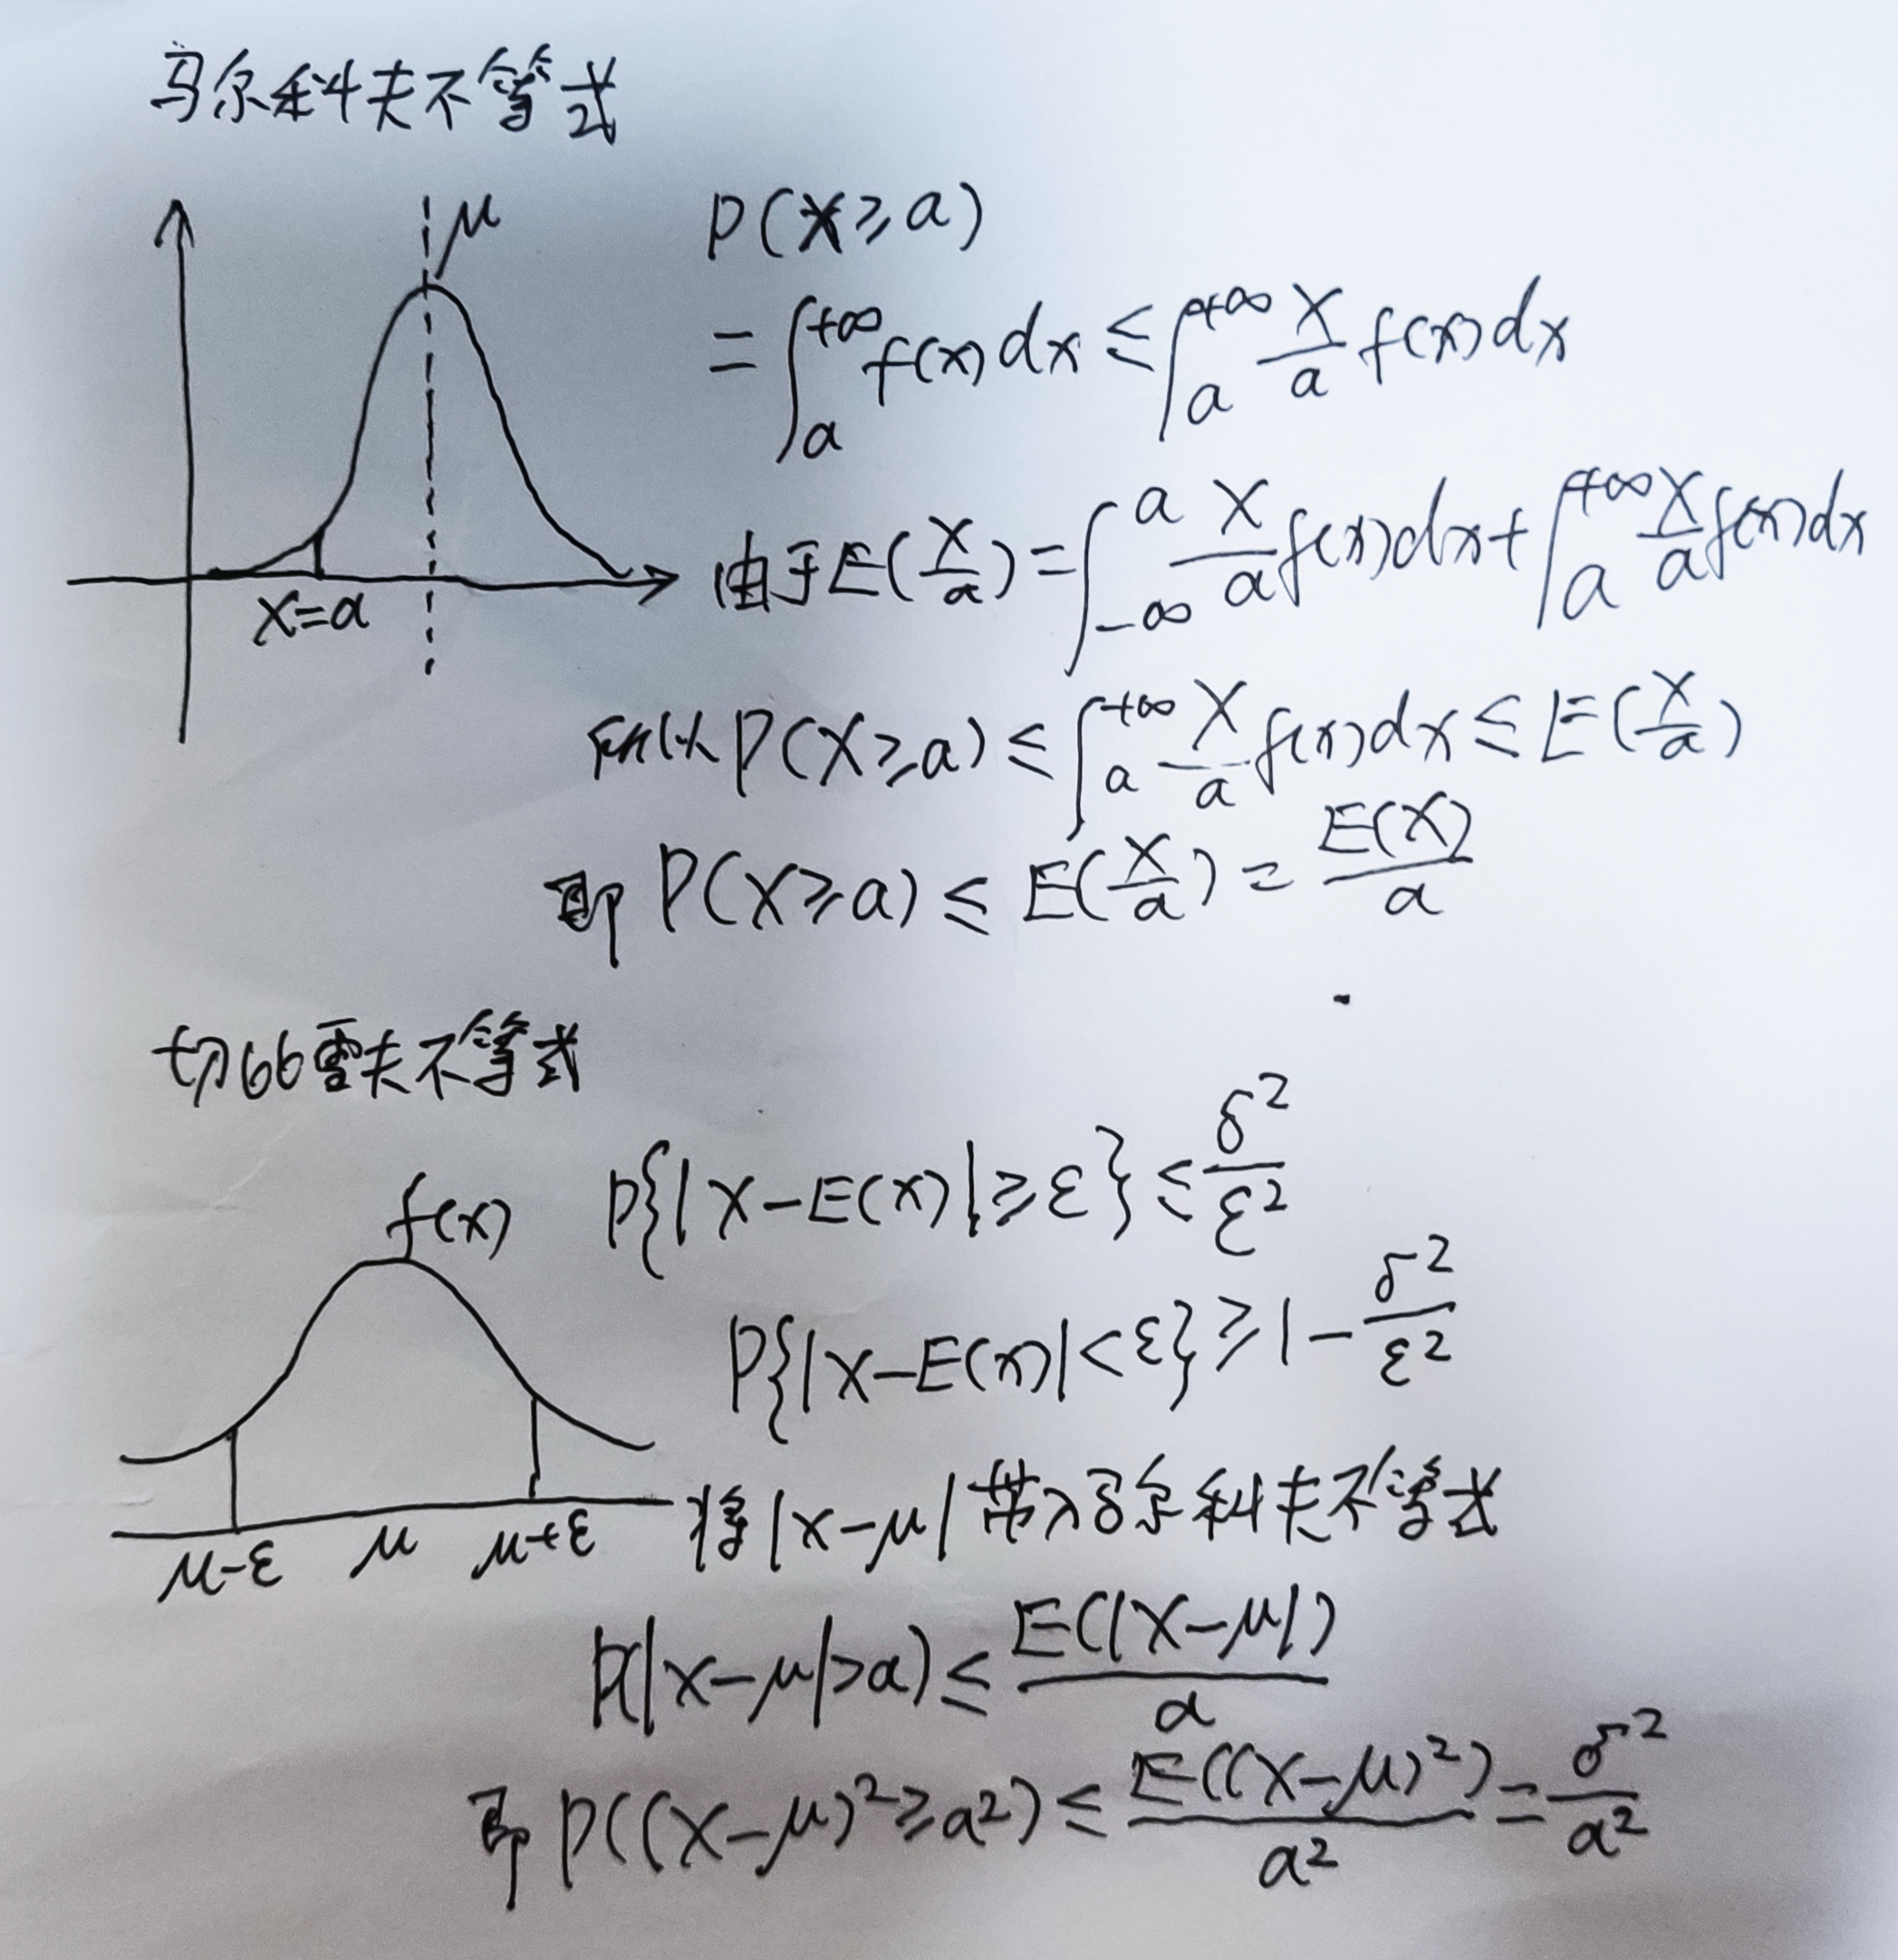 马尔科夫不等式
μ
P(X≥a)
=∫_a^{+∞} f(x)dx ≤ ∫_a^{+∞} x/a f(x)dx
x=a
由于E(x/a)=∫_{-∞}^a x/a f(x)dx+∫_a^{+∞} x/a f(x)dx
所以P(X≥a)≤∫_a^{+∞} x/a f(x)dx≤E(x/a)
即 P(X≥a)≤E(x/a)=E(X)/a
切比雪夫不等式
f(x)
P{|X-E(X)|≥ε}≤δ²/ε²
P{|X-E(x)|<ε}≥1-δ²/ε²
μ-ε μ μ+ε
将|x-μ|带入马尔科夫不等式
P(|x-μ|>a)≤E(|X-μ|)/a
即P((X-μ)²≥a²)≤E((X-μ)²)/a²=δ²/a²